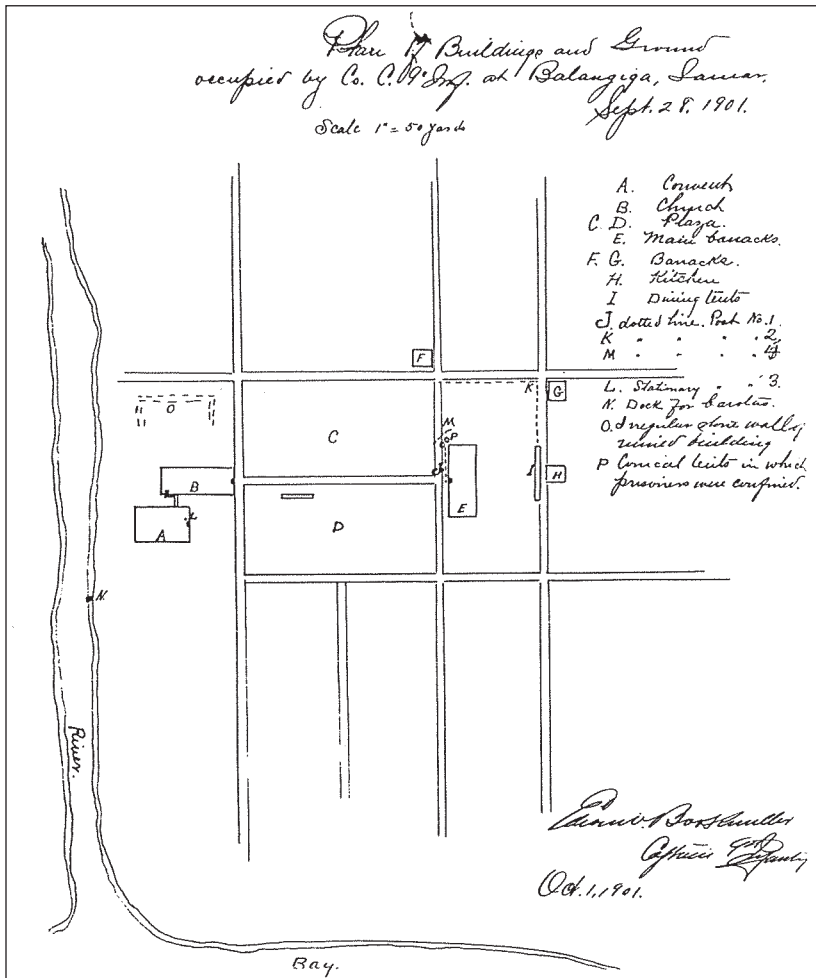 Plan of Buildings and Ground
occupied by Co. C. 9" Inf. at Balangiga, Samar.
Sept. 28. 1901.
Scale 1" = 50 yards
A. Convent
B. Church
C. D. Plaza.
E. Main barracks.
F. G. Barracks.
H. Kitchen
I Dining tents
J. dotted line. Post No. 1.
K " " " " 2,
M " " " " 4
L. Stationary " " 3.
N. Dock for barotos.
O. Irregular stone walls of
ruined building
P Conical tents in which
prisoners were confined.
F
K
G
O
C
M
P
J
B
I
H
E
L
A
D
N.
River.
Captain 9th Infantry
Oct. 1, 1901.
Bay.